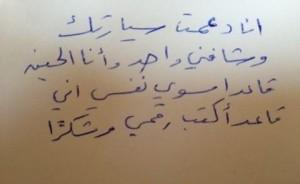 انا دعمت سيارتك
وشافني واحد وأنا الحينه
قاعد اسوي نفسي اني
قاعد أكتب رقمي وشكرًا